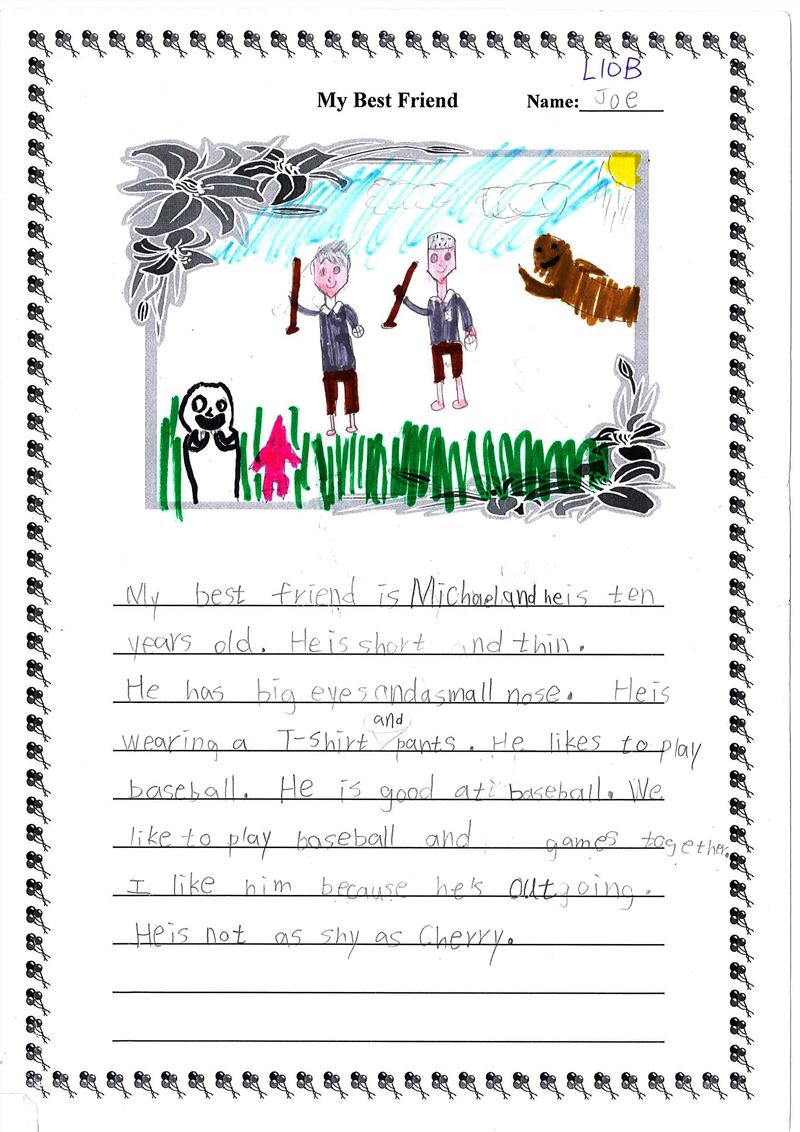 L10B
My Best Friend Name: Joe
My best friend is Michael and he is ten
years old. He is short and thin.
He has big eyes and a small nose. He is
and
wearing a T-shirt pants. He likes to play
baseball. He is good at baseball. We
like to play baseball and games together.
I like him because he's outgoing.
He is not as shy as Cherry.